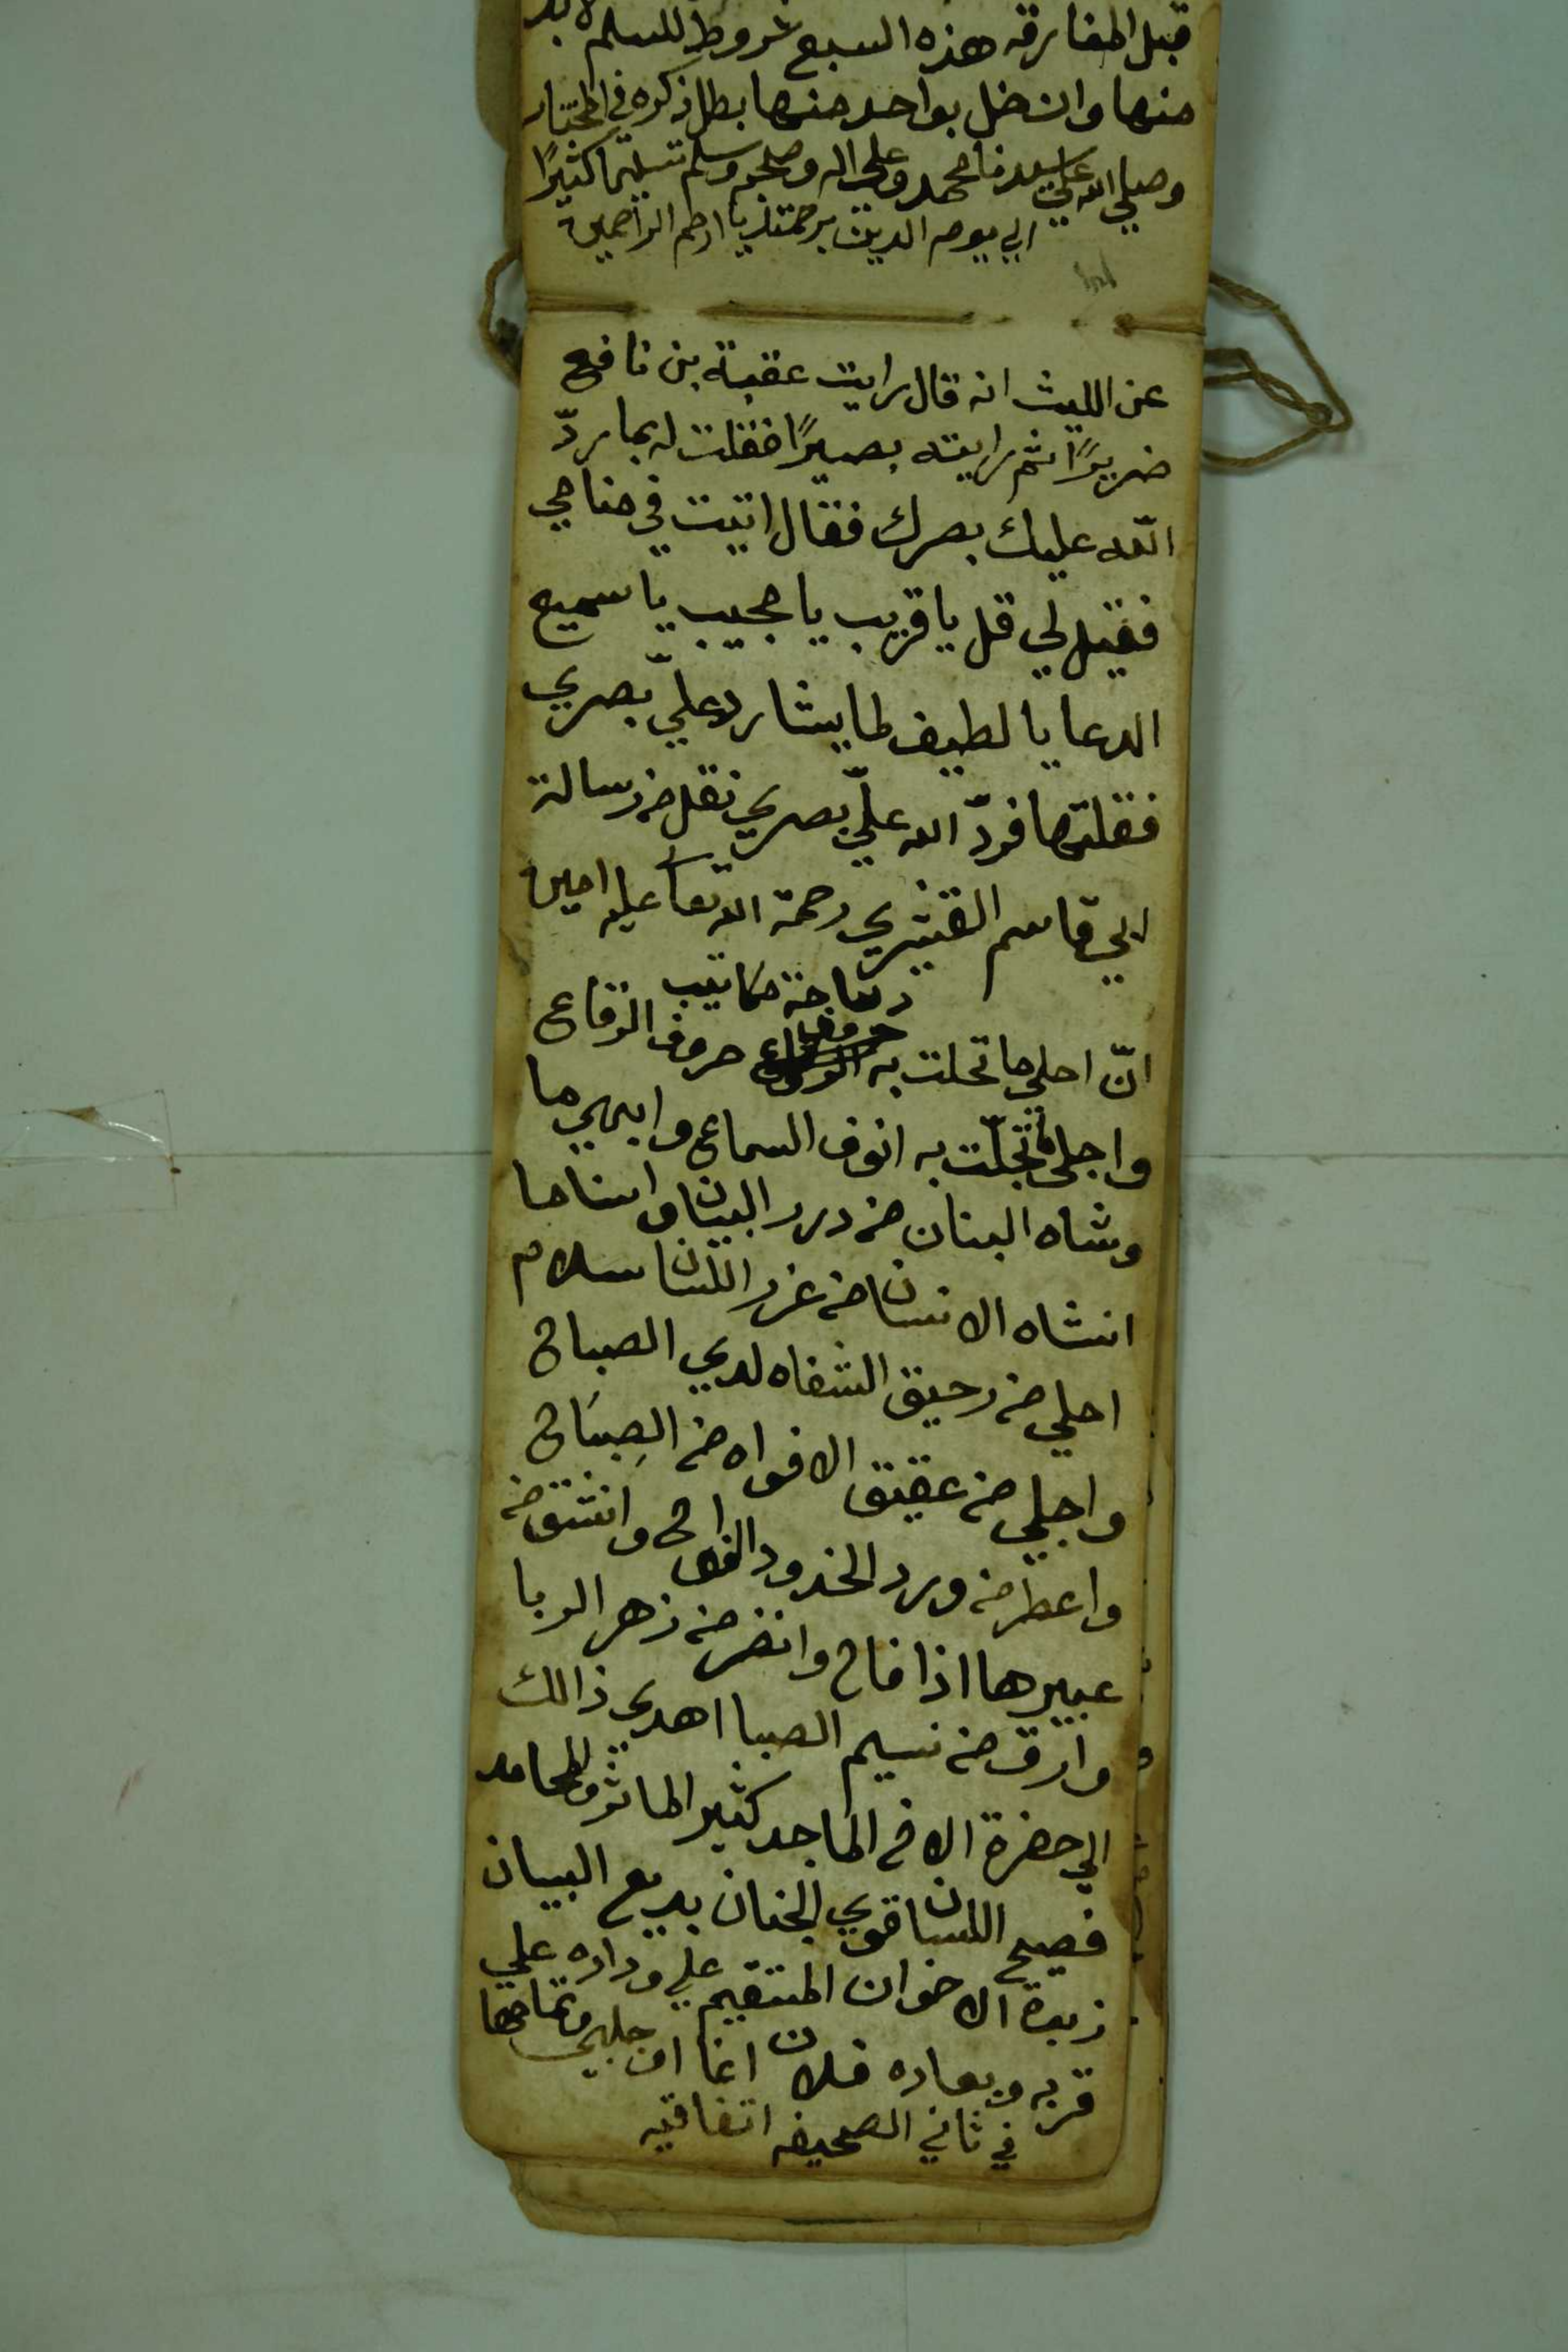 قبل المفارقه هذه السبع شروط للسلم لابد
منها وان خل بواحد منها بطل ذكره في المختار
وصلي الله علي سيدنا محمد وعلي اله وصحبه وسلم تسليما كثيرًا
الي يوم الدين برحمتك يا ارحم الراحمين
عن الليث انه قال رايت عقبة بن نافع
ضريرًا ثم رايته بصيرًا فقلت له بما ردّ
اللّه عليك بصرك فقال اتيت في منامي
فقيل لي قل يا قريب يا مجيب يا سميع
الدعا يا لطيف لما يشا رد عليّ بصري
فقلتها فردّ الله عليّ بصري نقل من رسالة
ابي قاسم القشيري رحمة الله تعا عليه امين
ديباجة مكاتيب
انّ احلي ما تحلت به حروف الرقاع
واجلي ما تجلّت به انوف السماع وابهي ما
وشاه البنان من درر البيان واسنا ما
انشاه الانسان من غرر اللسان سلام
احلي من رحيق الشفاه لدي الصباح
واجلي من عقيق الافواه من الصِبَاح
واعطر من ورد الخدود الفواح وانشق من
عبيرها اذا فاح وانضر من زهر الربا
وارق من نسيم الصبا اهدي ذالك
الي حضرة الاخ الماجد كثير الماثر والمحامد
فصيح اللسان قوي الجنان بديع البيان
زبدة الاخوان المستقيم علي وداده علي
قربه وبعاده فلان اغا ان جلبي وتمامها
في ثاني الصحيفه اتفاقيه